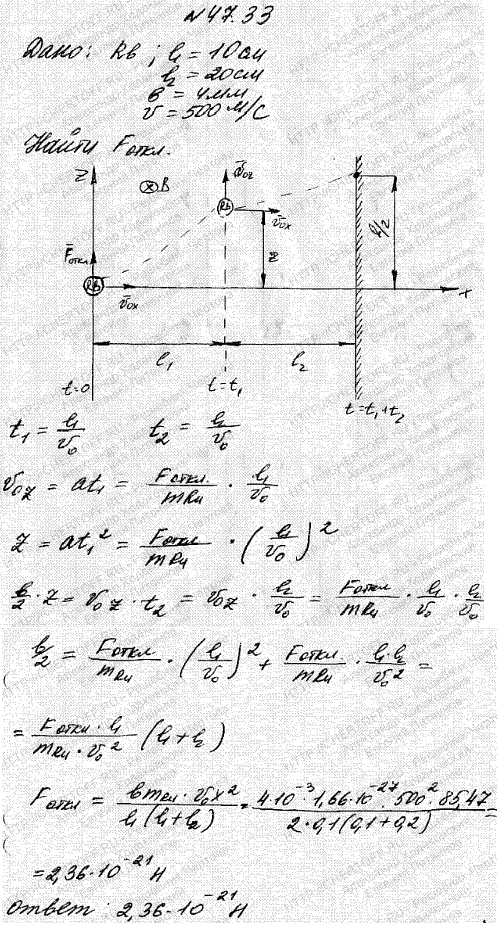 №47.33
Дано: Rb; l₁ = 10см
l₂ = 20см
в = 4мм
v = 500 м/с
Найти Fоткл.
z
⊗B
v̄₀z
Rb
v̄₀x
z
b/2
F̄откл
Rb
v̄₀x
x
l₁
l₂
t=0
t=t₁
t=t₁+t₂
t₁ = l₁/v₀ t₂ = l₂/v₀
v₀z = at₁ = Fоткл./mRb · l₁/v₀
z = at₁² = Fоткл./mRb · (l₁/v₀)²
b/2 · z = v₀z · t₂ = v₀z · l₂/v₀ = Fоткл./mRb · l₁/v₀ · l₂/v₀
b/2 = Fоткл./mRb · (l₁/v₀)² + Fоткл./mRb · l₁l₂/v₀² =
= Fоткл · l₁/mRb · v₀² (l₁+l₂)
Fоткл = вmRb · v₀x²/l₁(l₁+l₂) = 4·10⁻³·1,66·10⁻²⁷·500²·85,47/2·0,1(0,1+0,2) =
= 2,36·10⁻²¹ Н
ответ: 2,36·10⁻²¹ Н